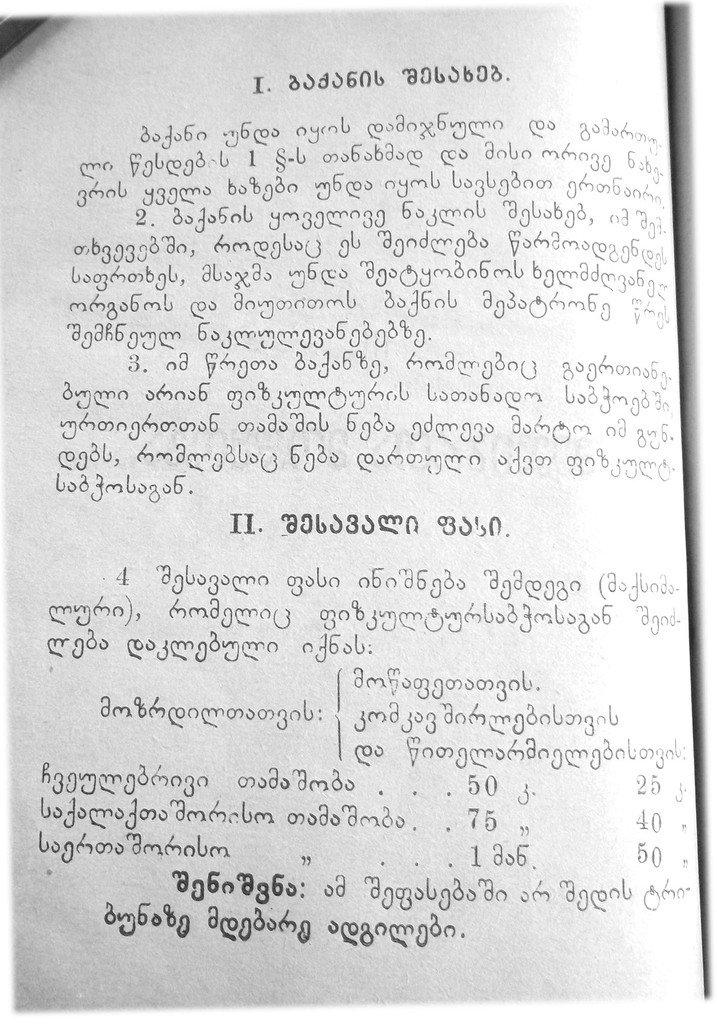 I. ბაქანის შესახებ.
ბაქანი უნდა იყოს დამიჯნული და გამართუ-
ლი წესდებ ს 1 §-ს თანახმად და მისი ორივე ნახე-
ვრის ყველა ხაზები უნდა იყოს სავსებით ერთნაირი.
2. ბაქანის ყოველივე ნაკლის შესახებ, იმ შემ-
თხვევებში, როდესაც ეს შეიძლება წარმოადგენდეს
საფრთხეს, მსაჯმა უნდა შეატყობინოს ხელმძღვანელ
ორგანოს და მიუთითოს ბაქნის მეპატრონე წრეს
შემჩნეულ ნაკლულევანებებზე.
3. იმ წრეთა ბაქანზე, რომლებიც გაერთიანე-
ბული არიან ფიზკულტურის სათანადო საბჭოებში,
ურთიერთთან თამაშის ნება ეძლევა მარტო იმ გუნ-
დებს, რომლებსაც ნება დართული აქვთ ფიზკულტ-
საბჭოსაგან.
II. შესავალი ფასი.
4 შესავალი ფასი ინიშნება შემდეგი (მაქსიმა-
ლური), რომელიც ფიზკულტურსაბჭოსაგან შეიძ-
ლება დაკლებული იქნას:
მოწაფეთათვის.
მოზრდილთათვის: კომკავშირლებისთვის
და წითელარმიელებისთვის:
ჩვეულებრივი თამაშობა . . . 50 კ. 25 კ.
საქალაქთაშორისო თამაშობა . . 75 „ 40 „
საერთაშორისო „ . . . 1 მან. 50 „
შენიშვნა: ამ შეფასებაში არ შედის ტრი-
ბუნაზე მდებარე ადგილები.